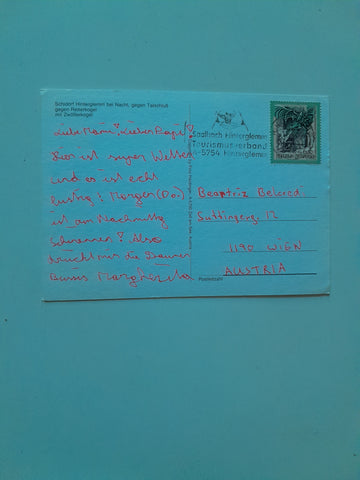 Skidorf Hinterglemm bei Nacht, gegen Talschluß
gegen Reiterkogel
mit Zwölferkogel
Liebe Mami! Lieber Papi!
Hier ist super Wetter
und es ist echt
lustig! Morgen (Do.)
ist am Nachmittag
Schirennen! Also
drückt mir die Daumen
Bussi Margherita
Saalbach Hinterglemm
Tourismusverband
A-5754 Hinterglemm
Beatrix
Suttingerg. 12
1190 WIEN
AUSTRIA
Postleitzahl